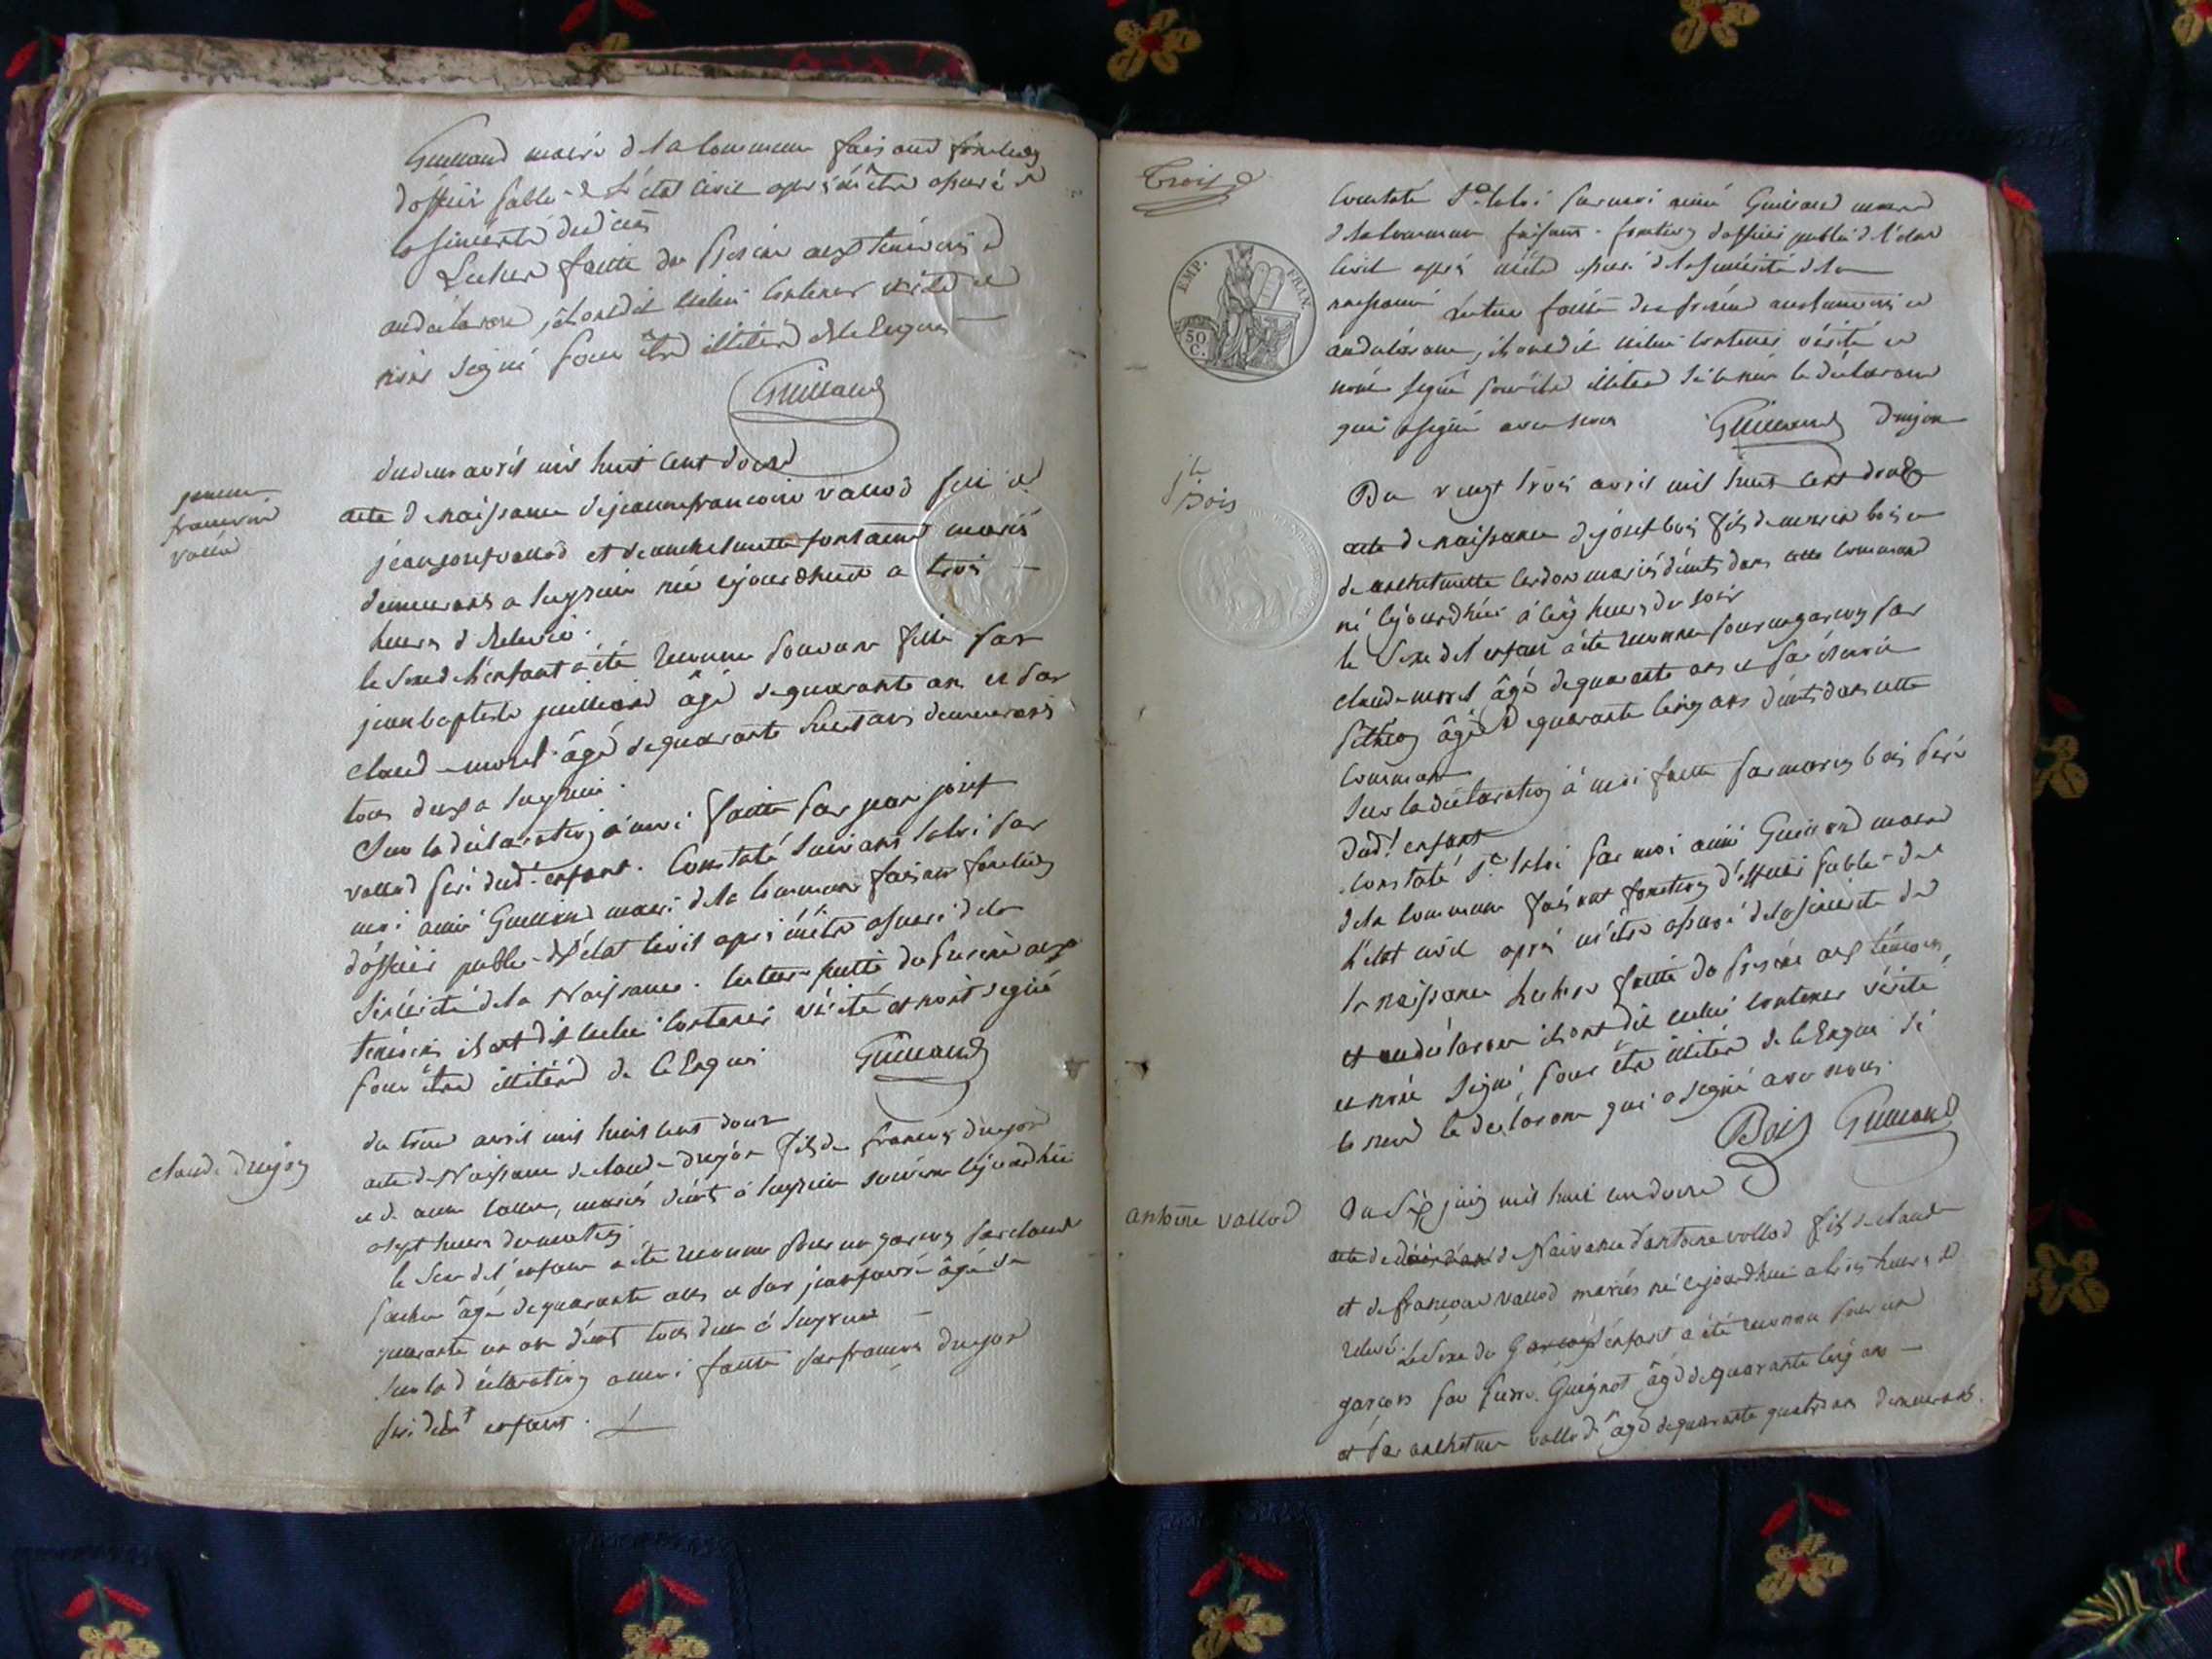 Guilland maire de la commune faisant fonction
d'officier public de l'état civil après m'être assuré de
la sincérité du décès
Lecture faite du présent aux témoins et
au déclarant, ils ont dit icelui contenir vérité et
non signé pour être illitéré de le enquis
Guilland
jeanne
francoise
vallod
du deux avril mil huit cent douze
acte de naissance de jeanne francoise vallod fille de
jean josept vallod et de anthelmette fontaine mariés
demeurans a Seyssieu née cejourdhuit a trois
heures de relevée.
le sexe de l'enfant a été reconnu pour une fille par
jean baptiste juilliand âgé de quarante ans et par
claude morel âgé de quarante huit ans demeurans
tous deux a
Sur la déclaration à moi faitte par jean josept
vallod peré dud. enfant. Constaté suivant la loi par
moi aimé Guilland maire de la commune faisant fonction
d'officier public de l'état civil après m'être assuré de la
sincérité de la Naissance. lecture faitte du present aux
témoins ils ont dit icelui contenir vérité et n'ont signé
pour être illitéré de ce Enquis Guilland
claude drujon
du treize avril mil huit cent douze
acte de Naissance de claude drujon fils de francois drujon
et de anne mariés a cejourdhui
a sept heures du matin
le sexe de l'enfant a été reconnu pour un garcon par claude
âgé de quarante ans et par jean favre âgé de
quarante un an tous deux à
Sur la déclaration a moi faitte par francois drujon
peré dudt enfant.
Trois
EMP. FRAN.
50 C.
Constaté St la loi par moi aimé Guilland maire
de la commune faisant fonction d'officier public de l'état
civil après m'être assuré de la sincérité de la
naissance Lecture faitte du présent aux témoins et
au déclarant, ils ont dit icelui contenir vérité et
n'ont signé pour être illitéré si ce n'est le déclarant
qui a signé avec nous Guilland Drujon
jh
Bois
Du vingt trois avril mil huit cent douze
acte de naissance de josept bois fils de marin bois et
de anthelmette cerdon mariés dans cette commune
né cejourdhui à cinq heures du soir
le Sexe de l'enfant a été reconnu pour un garcon par
claude morel âgé de quarante ans et par
âgé de quarante cinq ans dans cette
commune
Sur la déclaration à moi faitte par marin bois peré
dud.t enfant
Constaté St la loi par moi aimé Guilland maire
de la commune faisant fonction d'officier public de
l'état civil après m'être assuré de la sincérité de
la naissance Lecture faitte du présent aux témoins,
et au déclarant ils ont dit icelui contenir vérité
et n'ont signé, pour être illitéré de ce Enquis si
ce n'est le déclarant qui a signé avec nous.
Bois Guilland
antoine vallod
Du six juin mil huit cent douze
acte de de Naissance d'antoine vallod fils de claude
et de francoise vallod mariés né cejourdhui a trois heures de
relevé. Le Sexe du Garcon l'enfant a été reconnu pour un
garcon par pierre Guignot âgé de quarante cinq ans
et par anthelme vallod âgé de quarante quatre ans demeurans.